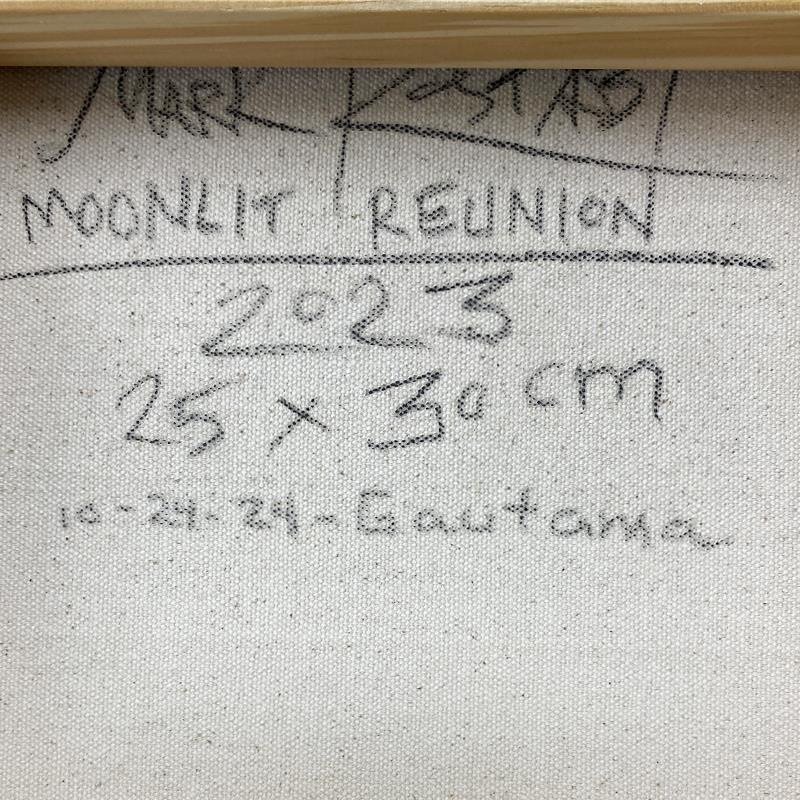 MARK KOSTABI
MOONLIT REUNION
2023
25 x 30 cm
10-24-24-Gautama